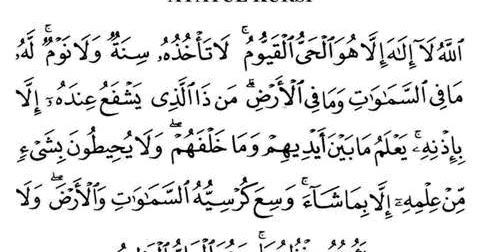 اللَّهُ لَا إِلَٰهَ إِلَّا هُوَ الْحَيُّ الْقَيُّومُ ۚ لَا تَأْخُذُهُ سِنَةٌ وَلَا نَوْمٌ ۚ لَهُ
مَا فِي السَّمَاوَاتِ وَمَا فِي الْأَرْضِ ۗ مَن ذَا الَّذِي يَشْفَعُ عِندَهُ إِلَّا
بِإِذْنِهِ ۚ يَعْلَمُ مَا بَيْنَ أَيْدِيهِمْ وَمَا خَلْفَهُمْ ۖ وَلَا يُحِيطُونَ بِشَيْءٍ
مِّنْ عِلْمِهِ إِلَّا بِمَا شَاءَ ۚ وَسِعَ كُرْسِيُّهُ السَّمَاوَاتِ وَالْأَرْضَ ۖ وَلَا